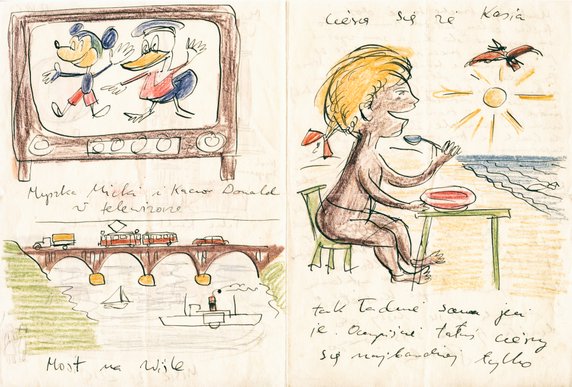 Myszka Miki i Kaczor Donald
w telewizorze
Most na Wiśle
cieszę się że Kasia
tak ładnie sama je
je. Oczywiście tatuś cieszy
się najbardziej tylko